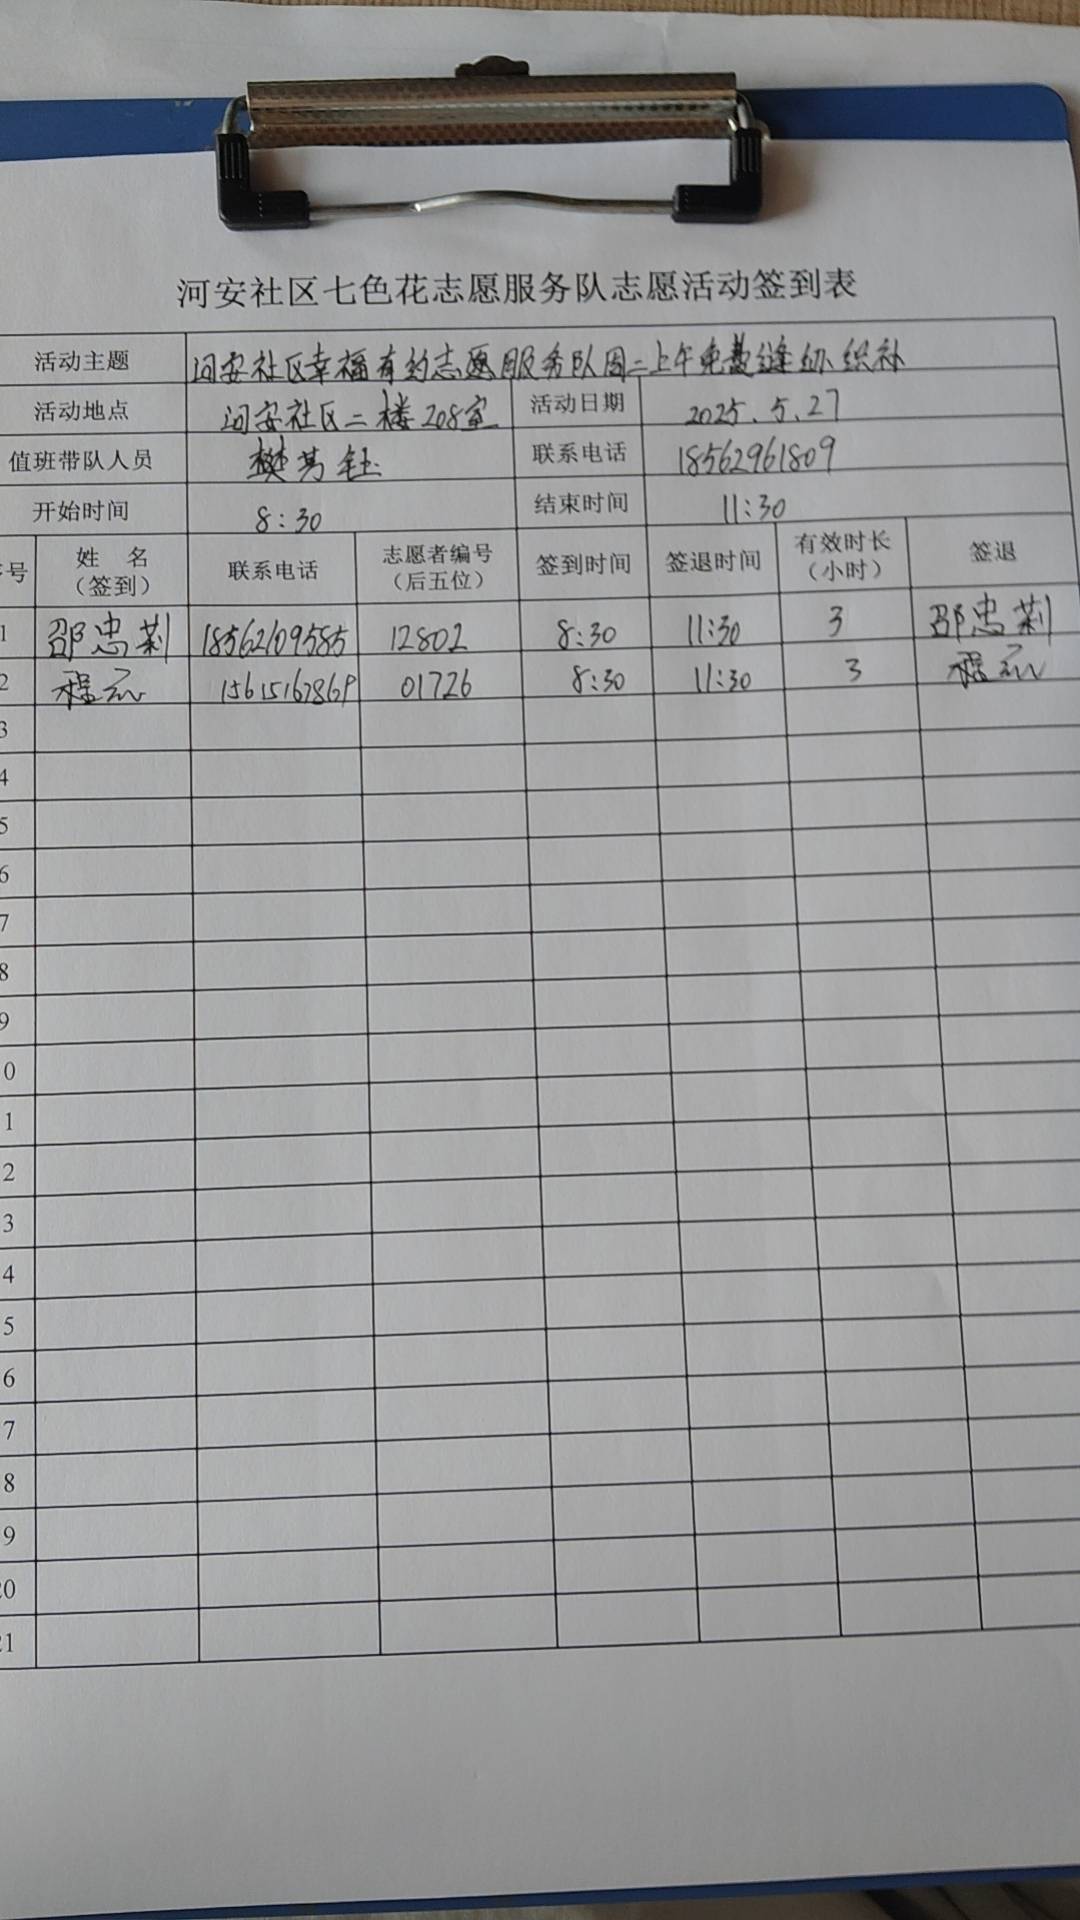 河安社区七色花志愿服务队志愿活动签到表
活动主题 河安社区幸福有约志愿服务队周二上午免费缝纫织补
活动地点 河安社区二楼208室 活动日期 2025.5.27
值班带队人员 樊芳钰 联系电话 18562961809
开始时间 8:30 结束时间 11:30
号 姓 名 (签到) 联系电话 志愿者编号 (后五位) 签到时间 签退时间 有效时长 (小时) 签退
1 邵忠莉 18562109585 12802 8:30 11:30 3 邵忠莉
2 程 15615167869 01726 8:30 11:30 3 程
3
4
5
6
7
8
9
0
1
2
3
4
5
6
7
8
9
20
21